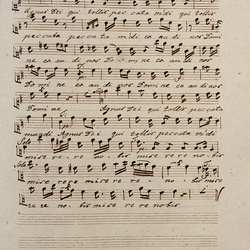 Agnus Dei qui tollis peccata mundi qui tollis
peccata peccata mundi exaudi nos Domi
ne exaudi nos Domine exaudi nos
Domine exaudi nos Domine exaudi nos
Domine Agnus Dei qui tollis peccata
mundi Agnus Dei qui tollis peccata mundi
Solo
miserere nobis miserere nobis
Solo
miserere miserere nobis misere
rere nobis miserere nobis